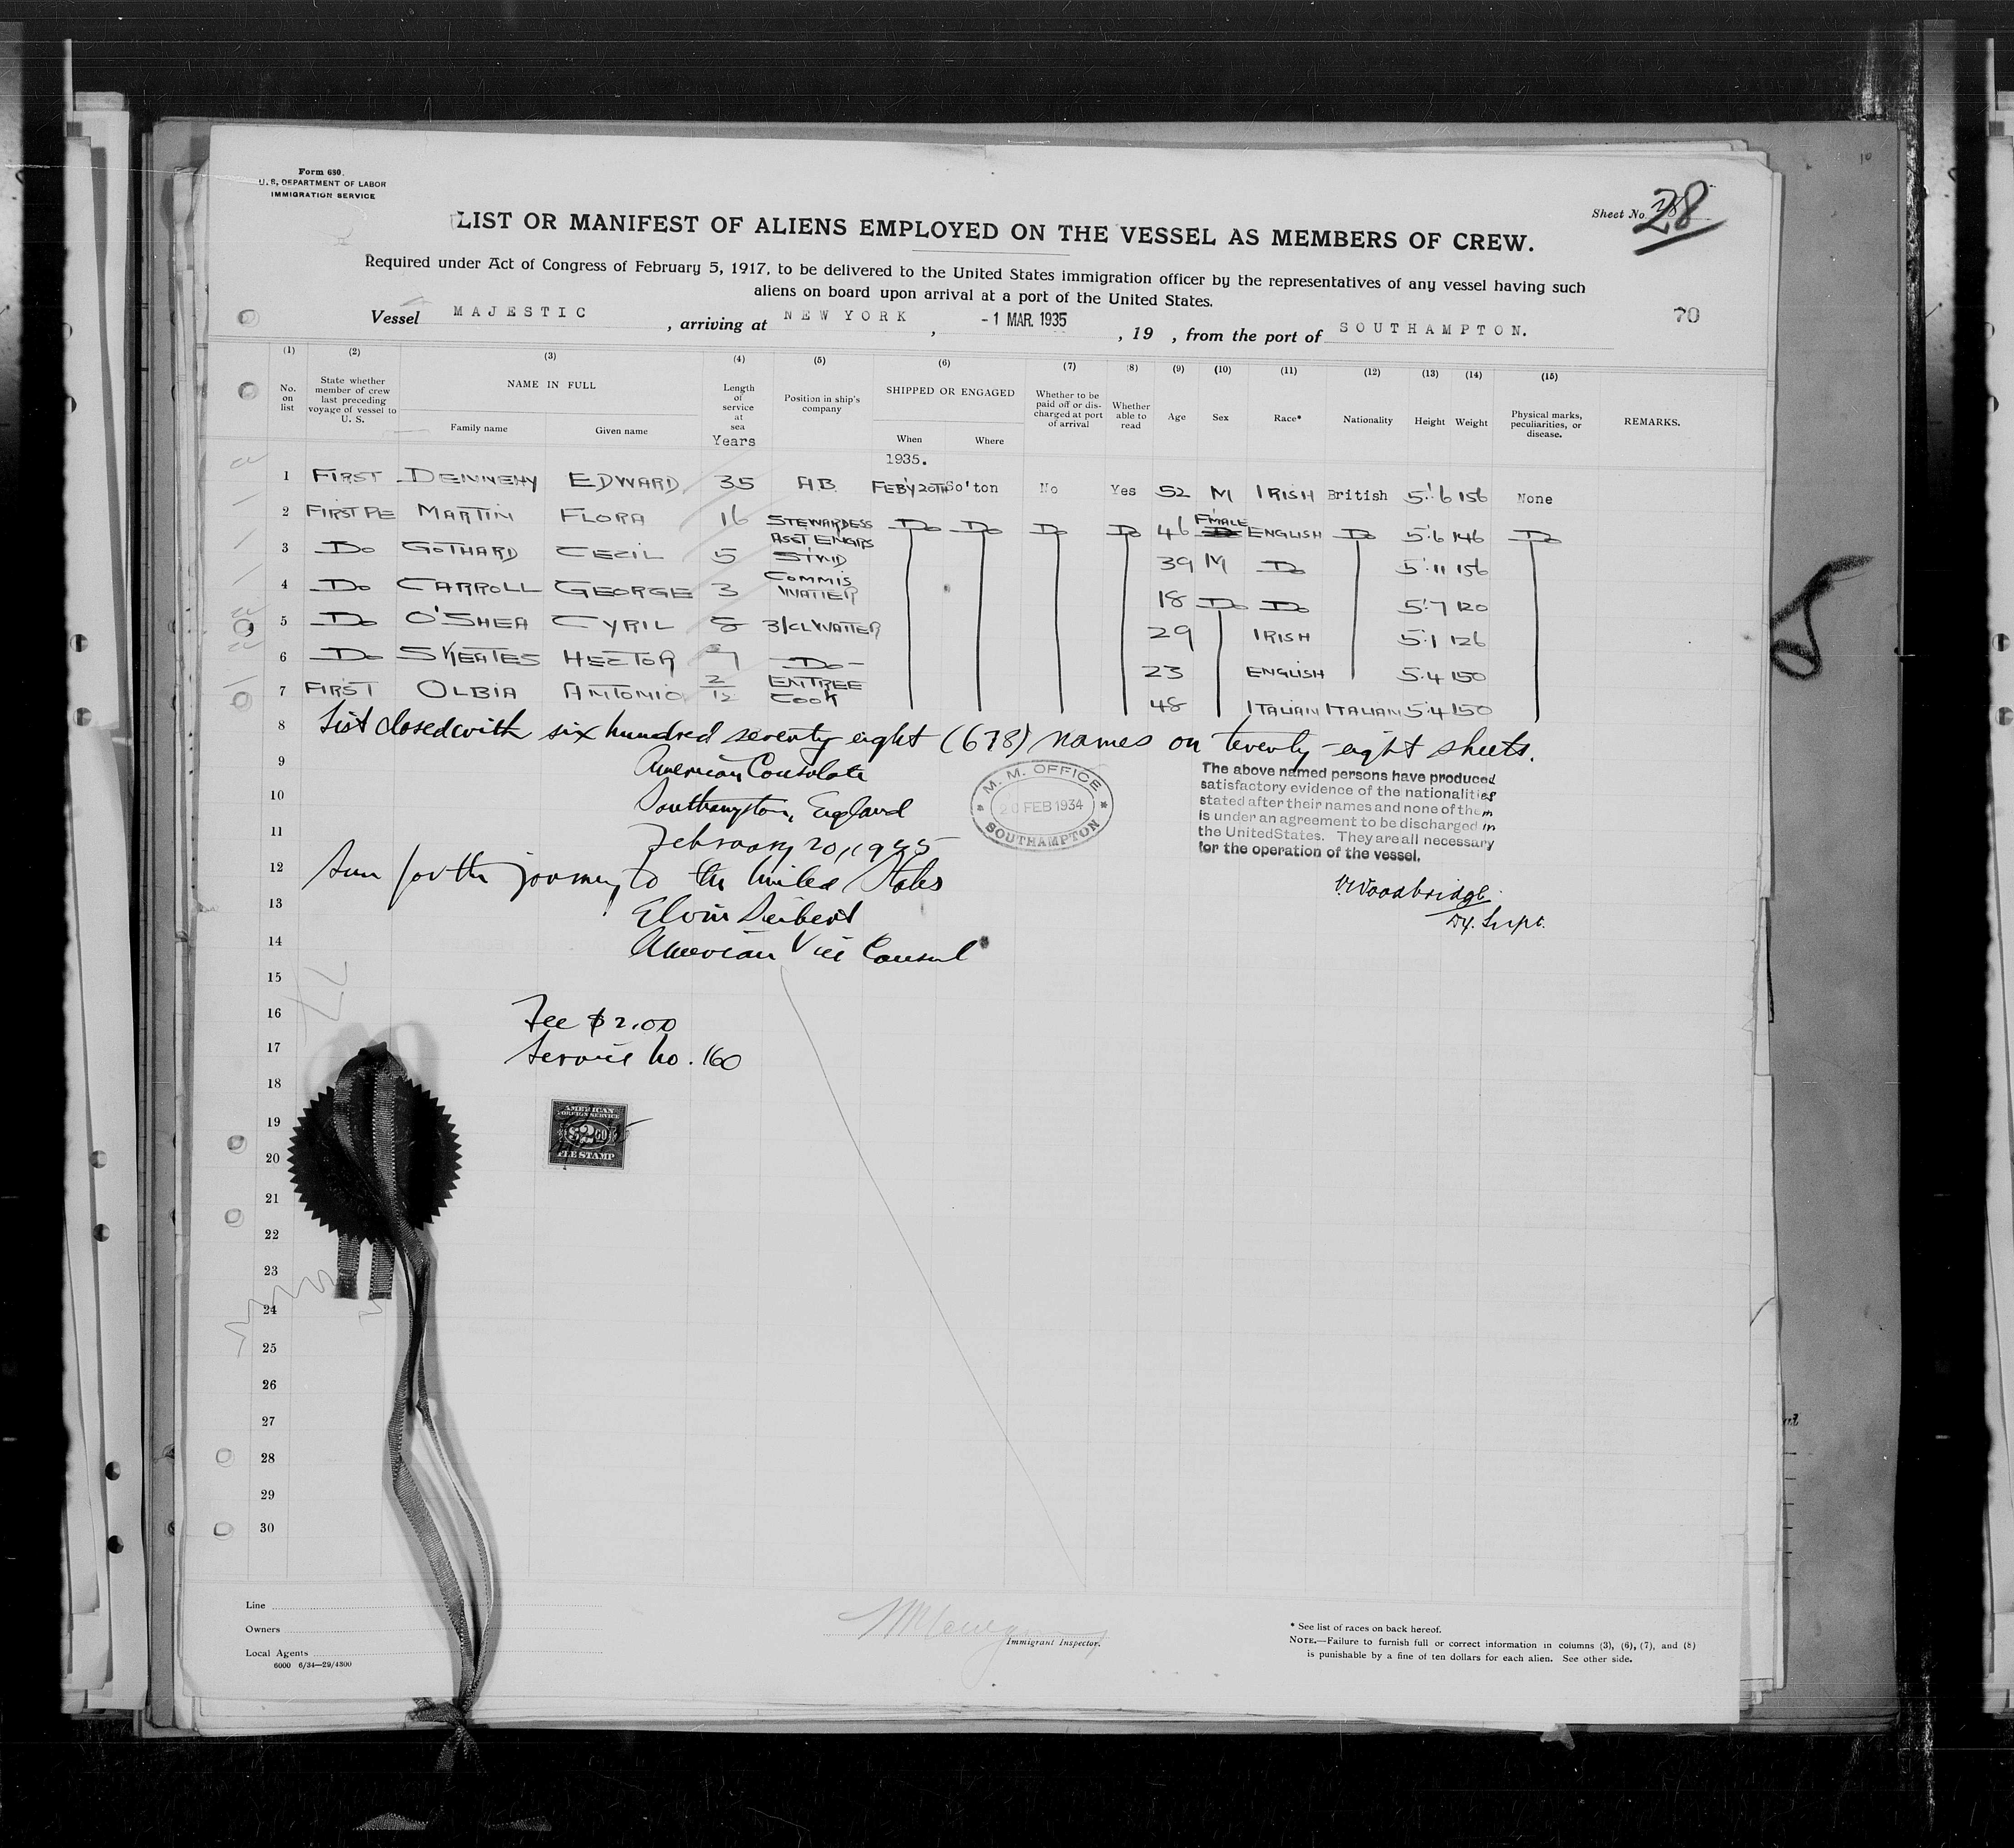 Form 680.
U. S. DEPARTMENT OF LABOR
IMMIGRATION SERVICE
Sheet No. 28
LIST OR MANIFEST OF ALIENS EMPLOYED ON THE VESSEL AS MEMBERS OF CREW.
Required under Act of Congress of February 5, 1917, to be delivered to the United States immigration officer by the representatives of any vessel having such
aliens on board upon arrival at a port of the United States.
70
Vessel MAJESTIC, arriving at NEW YORK, -1 MAR. 1935, 19 , from the port of SOUTHAMPTON.
(1) (2) (3) (4) (5) (6) (7) (8) (9) (10) (11) (12) (13) (14) (15)
No. on list
State whether member of crew last preceding voyage of vessel to U. S.
NAME IN FULL
Family name
Given name
Length of service at sea
Years
Position in ship's company
SHIPPED OR ENGAGED
When
Where
Whether to be paid off or discharged at port of arrival
Whether able to read
Age
Sex
Race*
Nationality
Height
Weight
Physical marks, peculiarities, or disease.
REMARKS.
1935.
1 FIRST DENNEHY EDWARD 35 A.B. FEB'Y 20TH So'ton No Yes 52 M IRISH British 5'.6 156 None
2 FIRST PE MARTIN FLORA 16 STEWARDESS Do Do Do Do 46 FMALE ENGLISH Do 5'.6 146 Do
3 Do GOTHARD CECIL 5 ASST ENGRS STWD 39 M Do 5'.11 156
4 Do CARROLL GEORGE 3 COMMIS WAITER 18 Do Do 5'.7 120
5 Do O'SHEA CYRIL 8 3/CL WAITER 29 IRISH 5'.1 126
6 Do SKEATES HECTOR 7 Do- 23 ENGLISH 5.4 150
7 FIRST OLBIA ANTONIO 2/12 ENTREE COOK 48 ITALIAN ITALIAN 5'.4 150
8 List closed with six hundred seventy eight (678) names on twenty-eight sheets.
9 American Consulate
10 Southampton, England
11 February 20, 1935
12 Seen for the journey to the United States
13 Elvin Seibert
14 American Vice Consul
M. M. OFFICE
20 FEB 1934
SOUTHAMPTON
The above named persons have produced
satisfactory evidence of the nationalities
stated after their names and none of them
is under an agreement to be discharged in
the United States. They are all necessary
for the operation of the vessel.
V. Woodbridge
Dy. Supt.
15
16 Fee $2.00
17 Service No. 160
18
19
20
21
22
23
24
25
26
27
28
29
30
AMERICAN
FOREIGN SERVICE
$2.00
FEE STAMP
Line
Owners
Local Agents
6000 6/34—29/4300
Immigrant Inspector.
* See list of races on back hereof.
NOTE.—Failure to furnish full or correct information in columns (3), (6), (7), and (8)
is punishable by a fine of ten dollars for each alien. See other side.